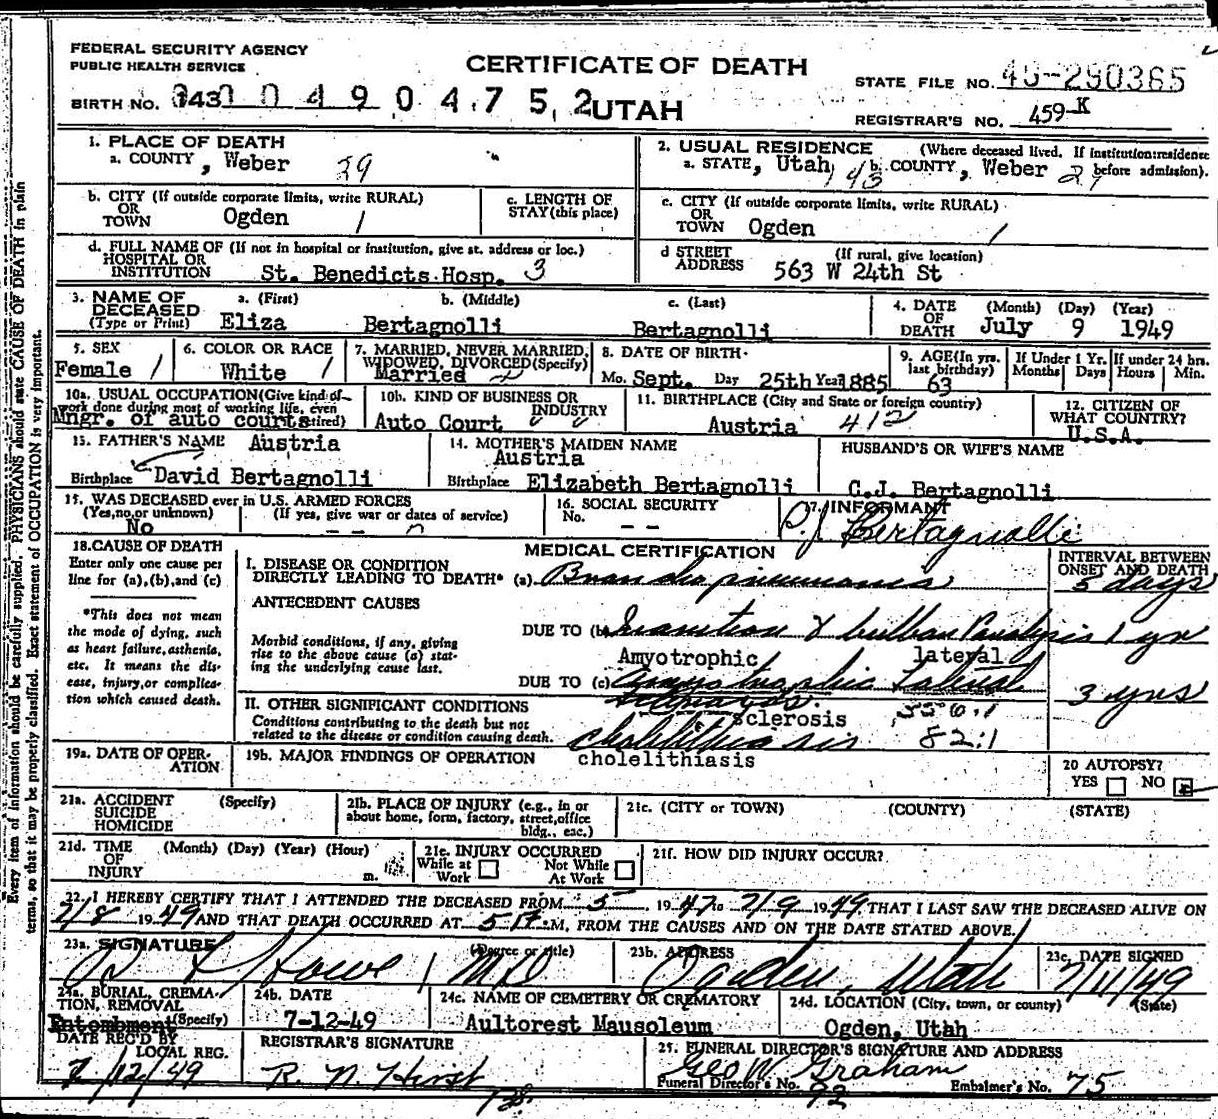 FEDERAL SECURITY AGENCY
PUBLIC HEALTH SERVICE
CERTIFICATE OF DEATH
STATE FILE NO. 45-290385
BIRTH NO. 1431 0 4 9 0 4 7 5 2 UTAH
REGISTRAR'S NO. 459-K
1. PLACE OF DEATH
a. COUNTY, Weber 29
2. USUAL RESIDENCE (Where deceased lived. If institution: residence before admission).
a. STATE, Utah 143 b. COUNTY, Weber 29
b. CITY (If outside corporate limits, write RURAL)
OR
TOWN Ogden 1
c. LENGTH OF
STAY (this place)
c. CITY (If outside corporate limits, write RURAL)
OR
TOWN Ogden 1
d. FULL NAME OF (If not in hospital or institution, give st. address or loc.)
HOSPITAL OR
INSTITUTION St. Benedicts Hosp. 3
d STREET
ADDRESS
(If rural, give location)
563 W 24th St
3. NAME OF
DECEASED
(Type or Print)
a. (First) b. (Middle) c. (Last)
Eliza Bertagnolli Bertagnolli
4. DATE
OF
DEATH
(Month) (Day) (Year)
July 9 1949
5. SEX
Female 1
6. COLOR OR RACE
White 1
7. MARRIED, NEVER MARRIED,
WIDOWED, DIVORCED (Specify)
Married
8. DATE OF BIRTH
Mo. Sept. Day 25th Year 1885
9. AGE (In yrs.
last birthday)
63
If Under 1 Yr.
Months Days
If under 24 hrs.
Hours Min.
10a. USUAL OCCUPATION (Give kind of
work done during most of working life, even
Mngr. of auto courts tired)
10b. KIND OF BUSINESS OR
INDUSTRY
Auto Court
11. BIRTHPLACE (City and State or foreign country)
Austria 412
12. CITIZEN OF
WHAT COUNTRY?
U.S.A.
13. FATHER'S NAME Austria
Birthplace David Bertagnolli
14. MOTHER'S MAIDEN NAME
Austria
Birthplace Elizabeth Bertagnolli
HUSBAND'S OR WIFE'S NAME
C.J. Bertagnolli
15. WAS DECEASED ever in U.S. ARMED FORCES
(Yes, no, or unknown) (If yes, give war or dates of service)
No - -
16. SOCIAL SECURITY
No. - -
17. INFORMANT
C. J. Bertagnolli
18. CAUSE OF DEATH
Enter only one cause per
line for (a), (b), and (c)
*This does not mean
the mode of dying, such
as heart failure, asthenia,
etc. It means the dis-
ease, injury, or complica-
tion which caused death.
MEDICAL CERTIFICATION
INTERVAL BETWEEN
ONSET AND DEATH
I. DISEASE OR CONDITION
DIRECTLY LEADING TO DEATH* (a) Broncho pneumonia 3 days
ANTECEDENT CAUSES
Morbid conditions, if any, giving
rise to the above cause (a) stat-
ing the underlying cause last.
DUE TO (b) Inanition & bulbar Paralysis 1 yr
Amyotrophic lateral
DUE TO (c) Amyotrophic Lateral 3 yrs
sclerosis
II. OTHER SIGNIFICANT CONDITIONS
Conditions contributing to the death but not
related to the disease or condition causing death.
356.1
82:1
cholelithiasis
19a. DATE OF OPER-
ATION
19b. MAJOR FINDINGS OF OPERATION cholelithiasis
20 AUTOPSY?
YES NO
21a. ACCIDENT
SUICIDE
HOMICIDE
(Specify)
21b. PLACE OF INJURY (e.g., in or
about home, form, factory, street, office
bldg., eac.)
21c. (CITY or TOWN) (COUNTY) (STATE)
21d. TIME
OF
INJURY
(Month) (Day) (Year) (Hour)
m.
21e. INJURY OCCURRED
While at
Work
Not While
At Work
21f. HOW DID INJURY OCCUR?
22. I HEREBY CERTIFY THAT I ATTENDED THE DECEASED FROM 5, 1947 to 7/9 1949. THAT I LAST SAW THE DECEASED ALIVE ON
7/8 1949 AND THAT DEATH OCCURRED AT 5 P.M, FROM THE CAUSES AND ON THE DATE STATED ABOVE.
23a. SIGNATURE (Degree or title)
Howe MD
23b. ADDRESS
Ogden, Utah
23c. DATE SIGNED
7/11/49
24a. BURIAL, CREMA-
TION, REMOVAL
Entombment (Specify)
24b. DATE
7-12-49
24c. NAME OF CEMETERY OR CREMATORY
Aultorest Mausoleum
24d. LOCATION (City, town, or county) (State)
Ogden, Utah
DATE REC'D BY
LOCAL REG.
7/12/49
REGISTRAR'S SIGNATURE
R. N. Hirst
25. FUNERAL DIRECTOR'S SIGNATURE AND ADDRESS
Geo W Graham
Funeral Director's No. 92 Embalmer's No. 75
Every item of information should be carefully supplied. PHYSICIANS should state CAUSE OF DEATH in plain
terms, so that it may be properly classified. Exact statement of OCCUPATION is very important.